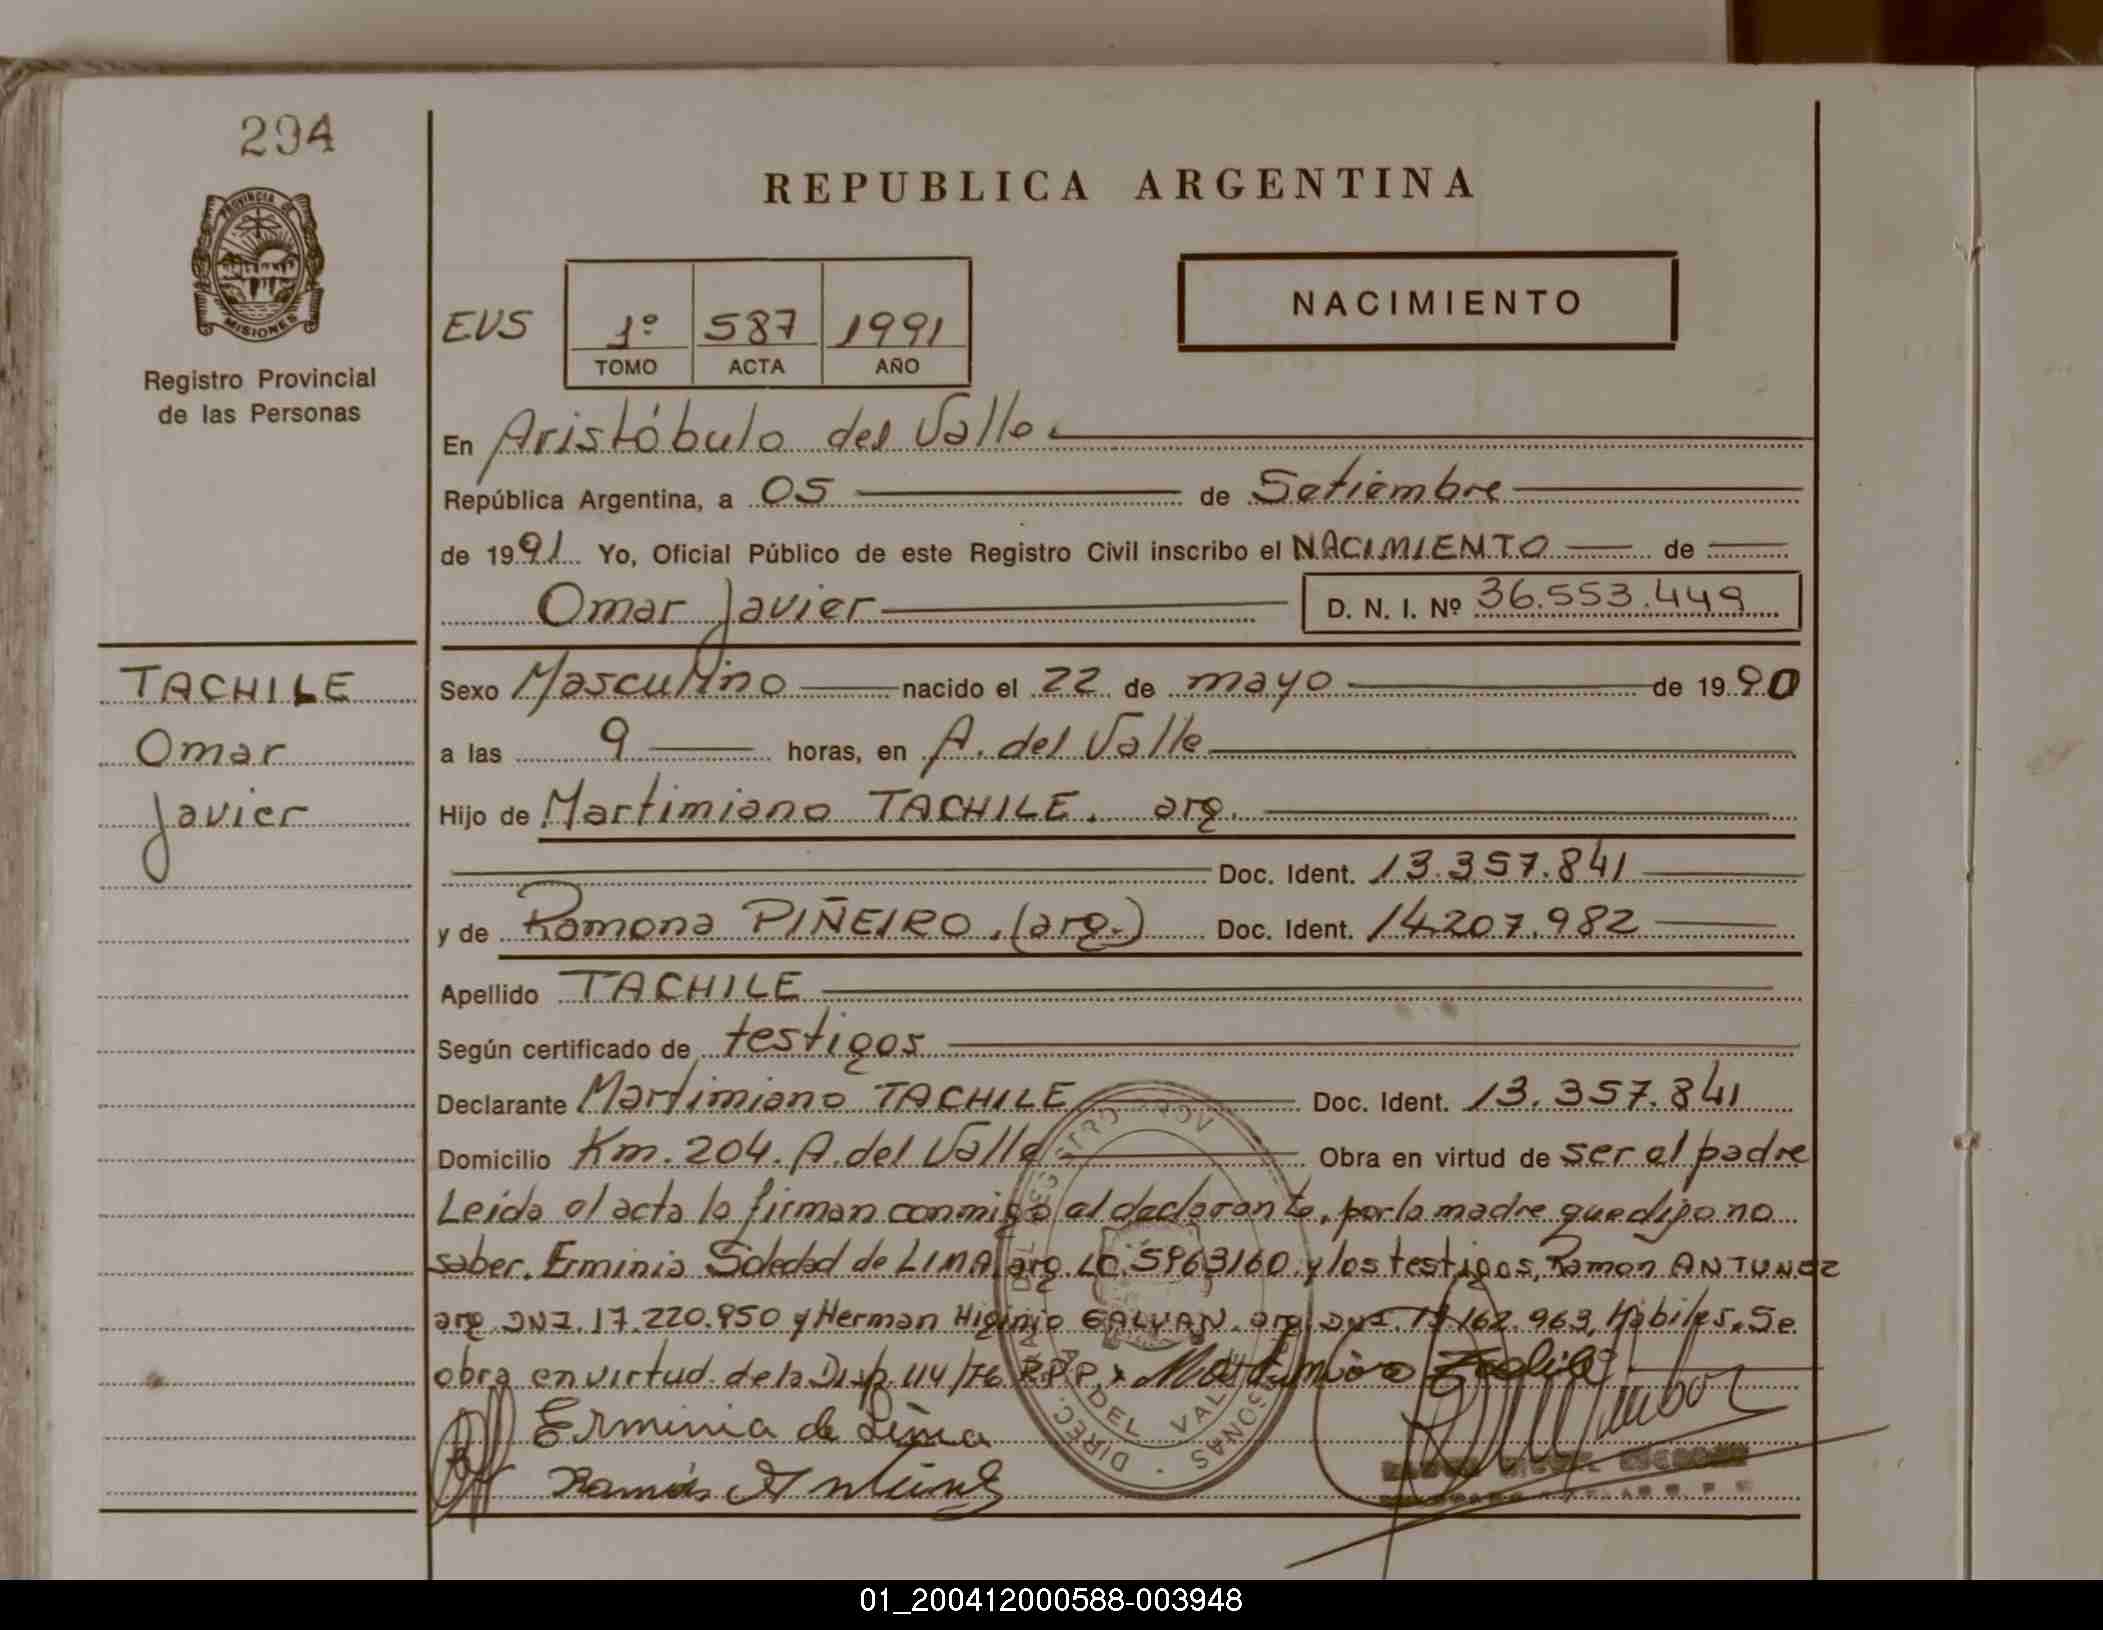 294
PROVINCIA DE
MISIONES
Registro Provincial
de las Personas
TACHILE
Omar
Javier
REPUBLICA ARGENTINA
NACIMIENTO
EVS 1º 587 1991
TOMO ACTA AÑO
En Aristóbulo del Valle.
República Argentina, a 05 de Setiembre
de 1991 Yo, Oficial Público de este Registro Civil inscribo el NACIMIENTO de
Omar Javier D. N. I. Nº 36.553.449
Sexo Masculino nacido el 22 de mayo de 1990
a las 9 horas, en A. del Valle
Hijo de Martimiano TACHILE. arg.
Doc. Ident. 13.357.841
y de Ramona PIÑEIRO. (arg.) Doc. Ident. 14.207.982
Apellido TACHILE
Según certificado de testigos
Declarante Martimiano TACHILE Doc. Ident. 13.357.841
Domicilio Km. 204. A. del Valle Obra en virtud de ser el padre
Leída el acta la firman conmigo el declarante, por la madre que dijo no
saber. Erminia Soledad de LIMA, arg. LC. 5963160. y los testigos, Ramon ANTUNEZ
arg. DNI. 17.220.950 y Herman Higinio GALVAN. arg. DNI. 13.162.963, Hábiles. Se
obra en virtud de la Disp. 114/76 R.P.P.
Erminia de Lima
Ramón Antúnez
01_200412000588-003948